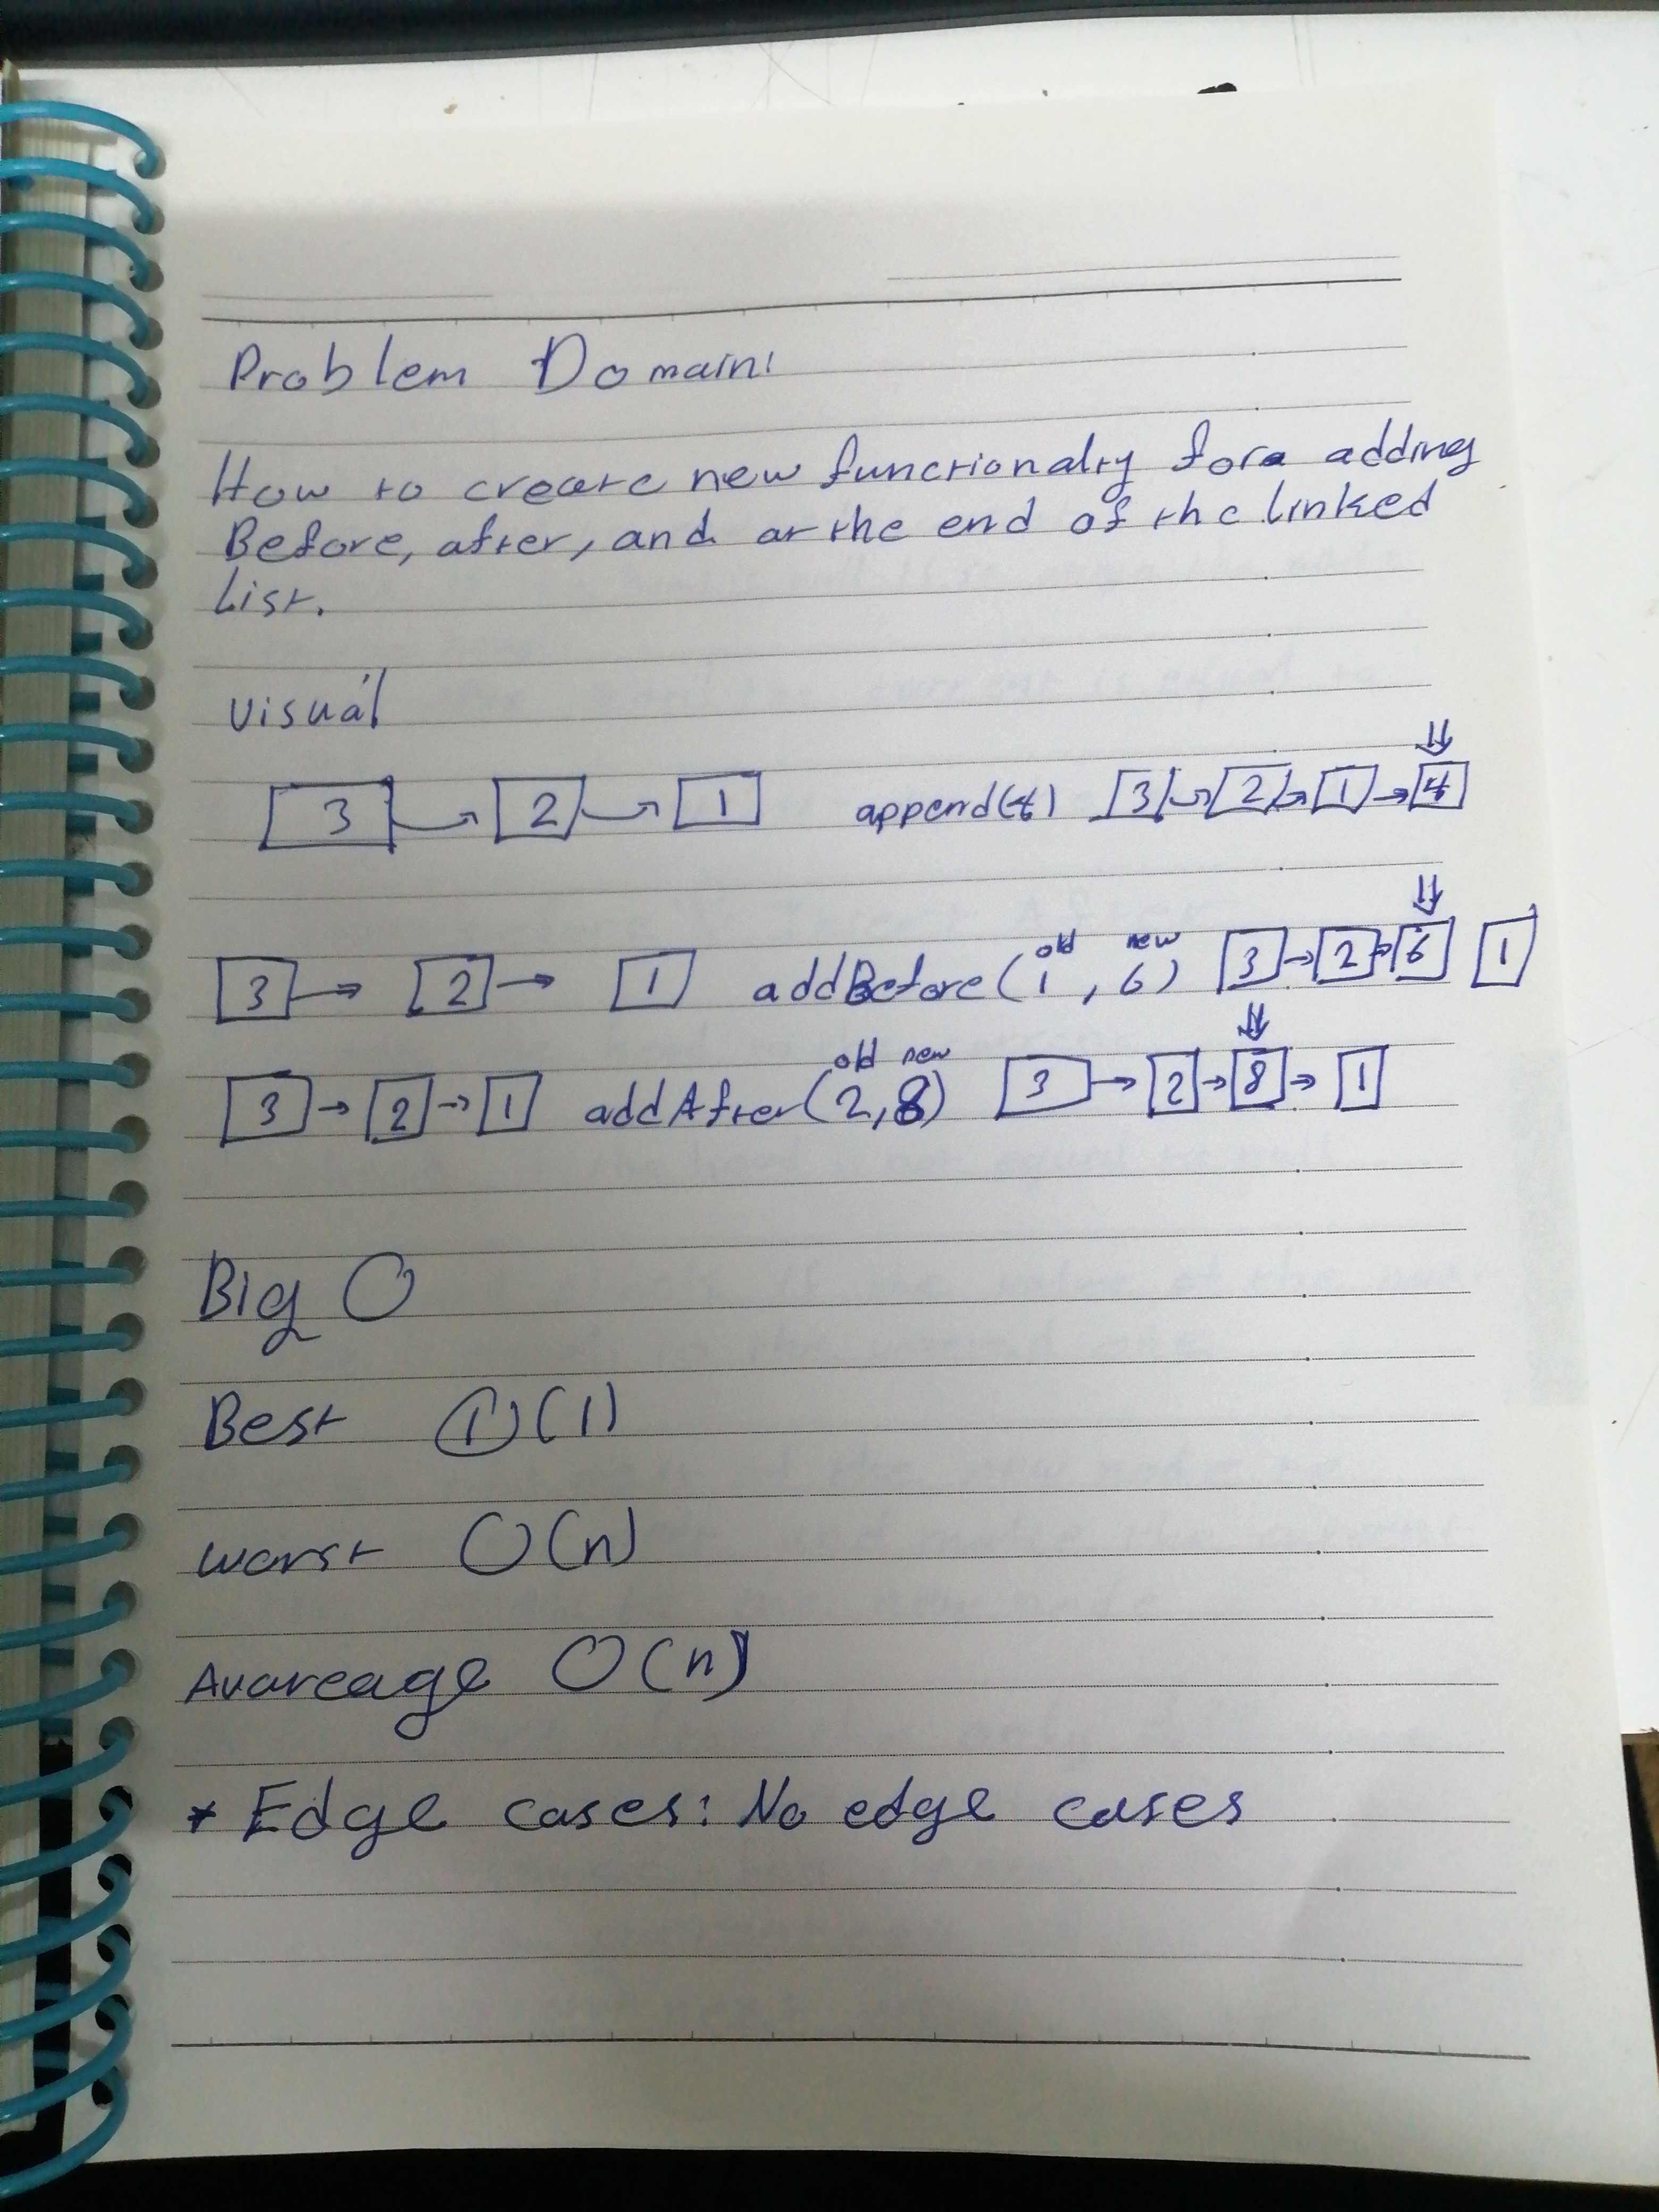 Problem Domain:
How to create new functionalty for adding
Before, after, and at the end of the linked
List.
visual
3 → 2 → 1 append(4) 3 → 2 → 1 → 4
old new
3 → 2 → 1 addBefore(1, 6) 3 → 2 → 6 1
old new
3 → 2 → 1 addAfter(2,8) 3 → 2 → 8 → 1
Big O
Best O(1)
worst O(n)
Avareage O(n)
* Edge cases: No edge cases